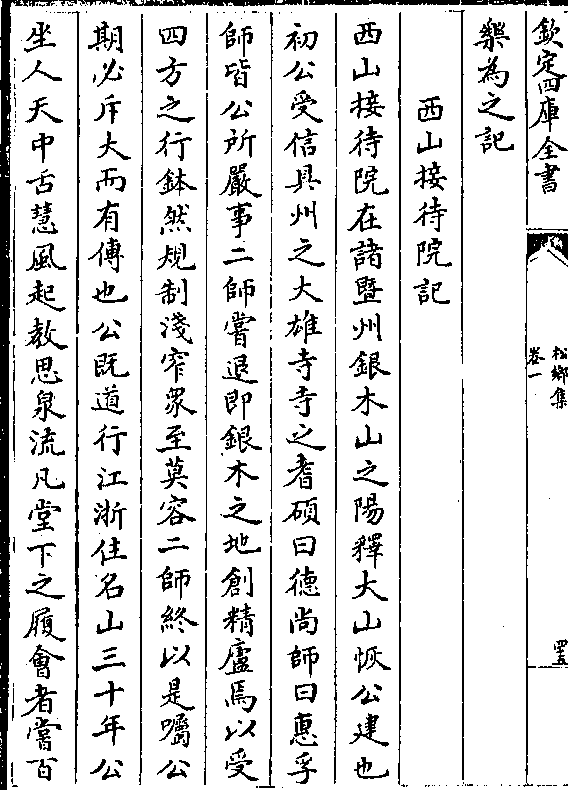 欽定四庫全書
松鄉集
卷一
樂為之記
西山接待院記
西山接待院在諸暨州銀木山之陽釋大山恢公建也
初公受信具州之大雄寺寺之耆碩曰德尚師曰惠孚
師皆公所嚴事二師嘗退即銀木之地創精廬焉以受
四方之行鉢然規制淺窄衆至莫容二師終以是囑公
期必斥大而有傳也公既道行江浙住名山三十年公
坐人天中舌慧風起教思泉流凡堂下之履會者嘗百